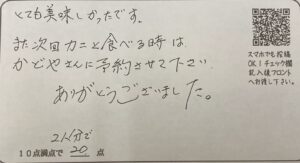 とても美味しかったです。
また次回カニを食べる時は
かどやさんに予約させて下さい
ありがとうございました。
2人分で
10点満点で 20 点
スマホでも投稿
OK！チェック欄
記入後フロント
へお渡し下さい。